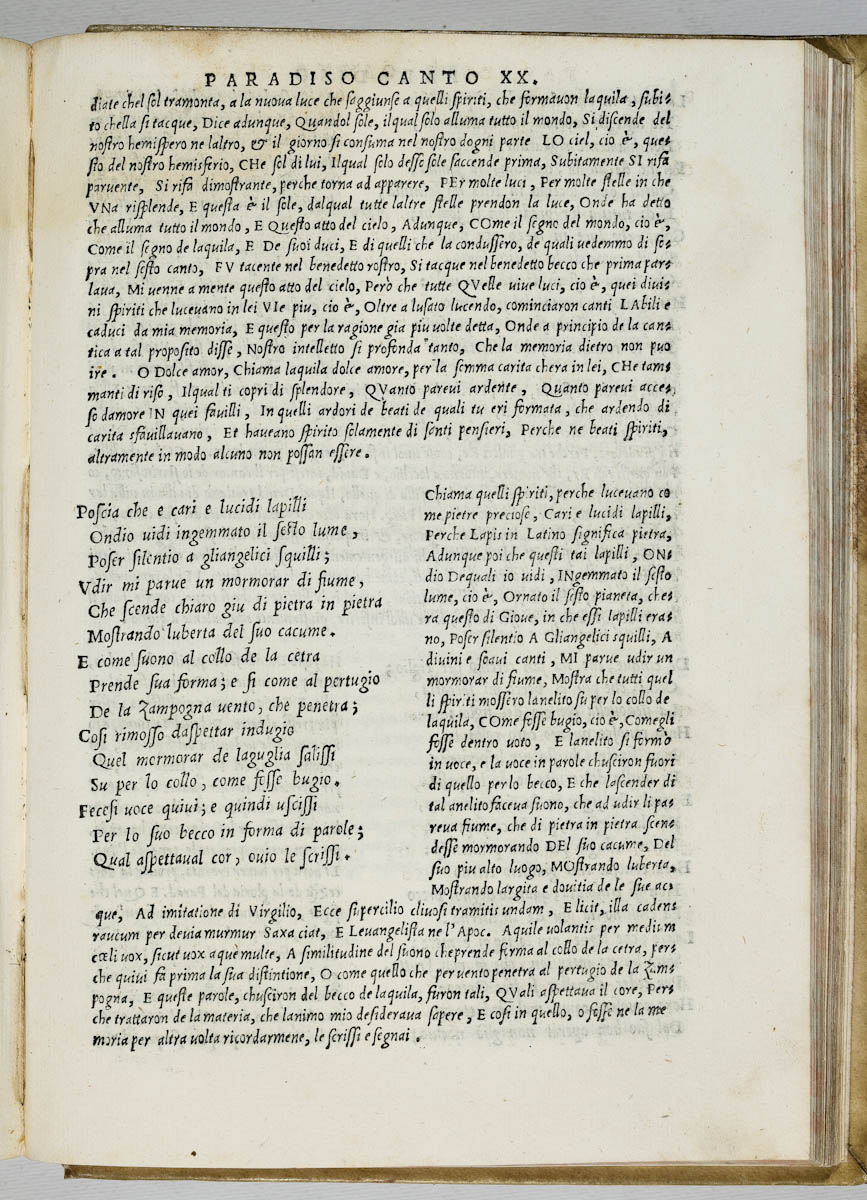 PARADISO CANTO XX.
diate chel sol tramonta, a la nuova luce che saggiunse a quelli spiriti, che formavon laquila, subi-
to chella si tacque, Dice adunque, Quandol sole, ilqual solo alluma tutto il mondo, Si discende del
nostro hemispero ne laltro, & il giorno si consuma nel nostro dogni parte LO ciel, cio è, que-
sto del nostro hemisferio, CHe sol di lui, Ilqual solo desso sole saccende prima, Subitamente SI rifà
parvente, Si rifà dimostrante, perche torna ad apparere, PEr molte luci, Per molte stelle in che
UNa risplende, E questa è il sole, dalqual tutte laltre stelle prendon la luce, Onde ha detto
che alluma tutto il mondo, E QUesto atto del cielo, Adunque, COme il segno del mondo, cio è,
Come il segno de laquila, E De suoi duci, E di quelli che la condussero, de quali vedemmo di so-
pra nel sesto canto, FV tacente nel benedetto rostro, Si tacque nel benedetto becco che prima par-
lava, Mi venne a mente questo atto del cielo, Però che tutte QVelle vive luci, cio è, quei divi-
ni spiriti che lucevano in lei VIe piu, cio è, Oltre a lusato lucendo, cominciaron canti LAbili e
caduci da mia memoria, E questo per la ragione gia piu volte detta, Onde a principio de la can-
tica a tal proposito disse, Nostro intelletto si profonda tanto, Che la memoria dietro non puo
ire. O Dolce amor, Chiama laquila dolce amore, per la somma carita chera in lei, CHe tam-
manti di riso, Ilqual ti copri di splendore, QVanto parevi ardente, Quanto parevi acce-
so damore IN quei favilli, In quelli ardori de beati de quali tu eri formata, che ardendo di
carita sfavillavano, Et haveano spirito solamente di santi pensieri, Perche ne beati spiriti,
altramente in modo alcuno non possan essere.
Poscia che e cari e lucidi lapilli
Ondio uidi ingemmato il sesto lume,
Poser silentio a gliangelici squilli;
Vdir mi parue un mormorar di fiume,
Che scende chiaro giu di pietra in pietra
Mostrando luberta del suo cacume.
E come suono al collo de la cetra
Prende sua forma; e si come al pertugio
De la Zampogna uento, che penetra;
Cosi rimosso daspettar indugio
Quel mormorar de laguglia salissi
Su per lo collo, come fosse bugio.
Fecesi uoce quiui; e quindi uscissi
Per lo suo becco in forma di parole;
Qual aspettaual cor, ouio le scrissi.
Chiama quelli spiriti, perche lucevano co
me pietre preciose, Cari e lucidi lapilli,
Perche Lapis in Latino significa pietra,
Adunque poi che questi tai lapilli, ON-
dio Dequali io vidi, INgemmato il sesto
lume, cio è, Ornato il sesto pianeta, che-
ra questo di Giove, in che essi lapilli era-
no, Poser silentio A Gliangelici squilli, A
divini e soavi canti, MI parve udir un
mormorar di fiume, Mostra che tutti quel
li spiriti mossero lanelito su per lo collo de
laquila, COme fosse bugio, cio è, Comegli
fosse dentro voto, E lanelito si formò
in voce, e la voce in parole chusciron fuori
di quello per lo becco, E che lascender di
tal anelito faceva suono, che ad udir li pa-
reva fiume, che di pietra in pietra scen-
desse mormorando DEl suo cacume, Del
suo piu alto luogo, MOstrando luberta,
Mostrando largita e dovitia de le sue ac-
que, Ad imitatione di Virgilio, Ecce supercilio clivosi tramitis undam, Elicit, illa cadens
raucum per devia murmur Saxa ciat, E Levangelista ne l'Apoc. Aquile volantis per medium
cœli vox, sicut vox aquę multe, A similitudine del suono cheprende forma al collo de la cetra, per-
che quivi fa prima la sua distintione, O come quello che per vento penetra al pertugio de la Zam-
pogna, E queste parole, chusciron del becco de laquila, furon tali, QVali aspettava il core, Per-
che trattaron de la materia, che lanimo mio desiderava sapere, E cosi in quello, o fosse ne la me
moria per altra volta ricordarmene, le scrissi e segnai.